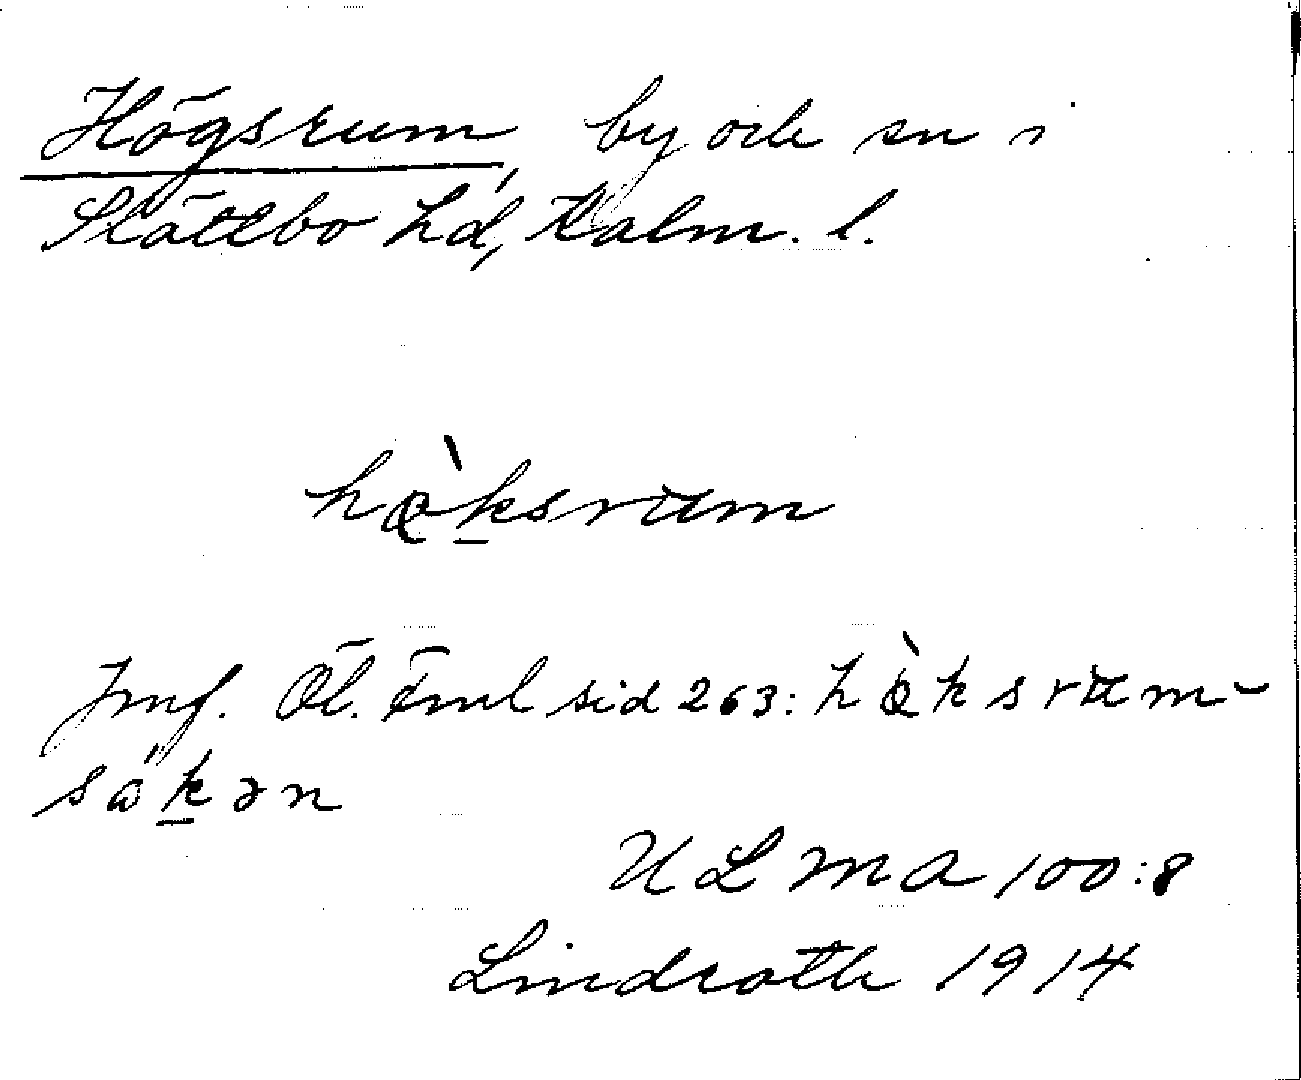 Högsrum, by och sn i
Slättbo hd, Kalm. l.
hø̀ksrum
Jmf. Öl. Fml sid 263: hø̀ksrum-
säkən
ULMA 100:8
Lindroth 1914